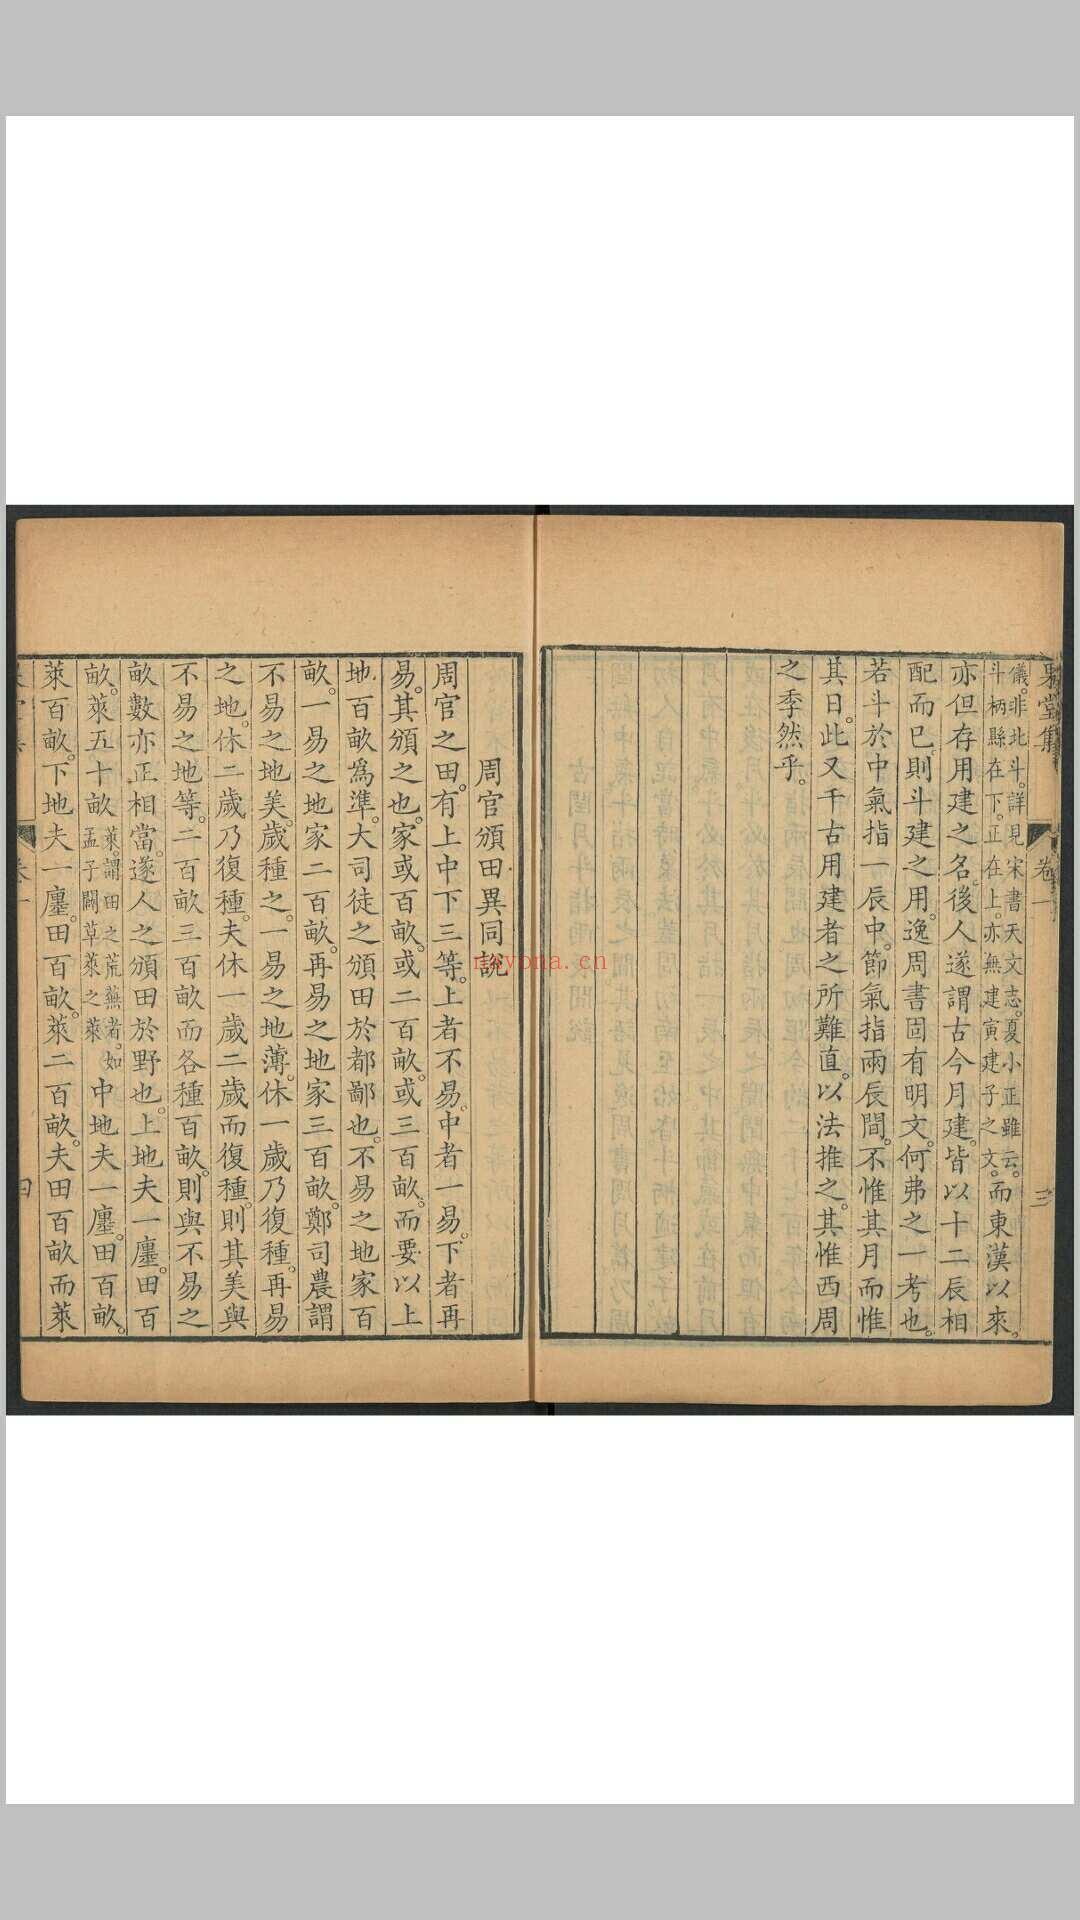 果堂集 卷一 三
儀。非北斗。詳見宋書天文志。夏小正雖云。
斗柄縣在下。正在上。亦無建寅建子之文。而東漢以來。
亦但存用建之名。後人遂謂古今月建。皆以十二辰相
配而已。則斗建之用。逸周書固有明文。何弗之一考也。
若斗於中氣指一辰中。節氣指兩辰間。不惟其月而惟
其日。此又千古用建者之所難直。以法推之。其惟西周
之季然乎。
周官頒田異同說
周官之田。有上中下三等。上者不易。中者一易。下者再
易。其頒之也。家或百畝。或二百畝。或三百畝。而要以上
地百畝爲準。大司徒之頒田於都鄙也。不易之地家百
畝。一易之地家二百畝。再易之地家三百畝。鄭司農謂
不易之地美。歲種之。一易之地薄。休一歲乃復種。再易
之地。休二歲乃復種。夫休一歲二歲而復種。則其美與
不易之地等。二百畝三百畝而各種百畝。則與不易之
畝數亦正相當。遂人之頒田於野也。上地夫一廛。田百
畝。萊五十畝萊。謂田之荒蕪者。如
孟子闢草萊之萊中地夫一廛。田百畝。
萊百畝。下地夫一廛。田百畝。萊二百畝。夫田百畝而萊
四
nayona.cn